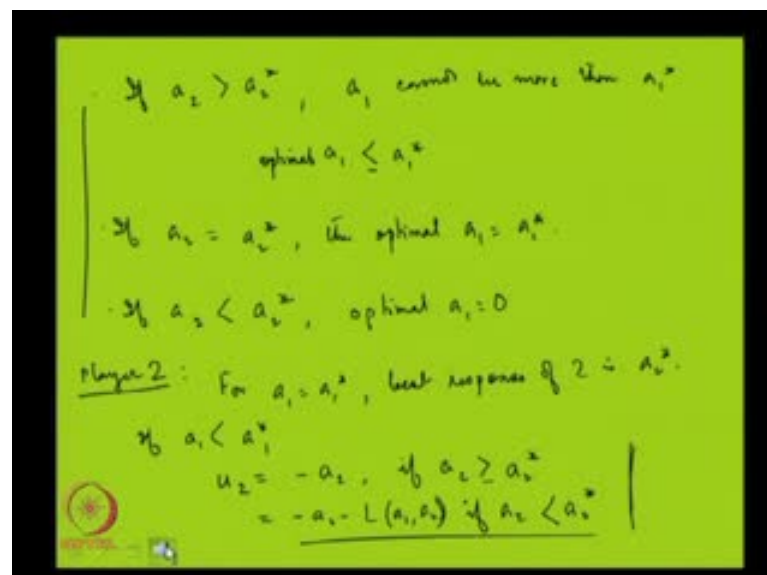 If a₂ > a₂*, a₁ cannot be more than a₁*
optimal a₁ ≤ a₁*
If a₂ = a₂*, the optimal a₁ = a₁*.
If a₂ < a₂*, optimal a₁ = 0
Player 2: For a₁ = a₁*, best response of 2 is a₂*.
If a₁ < a₁*
u₂ = -a₂, if a₂ ≥ a₂*
= -a₂ - L(a₁, a₂) if a₂ < a₂*